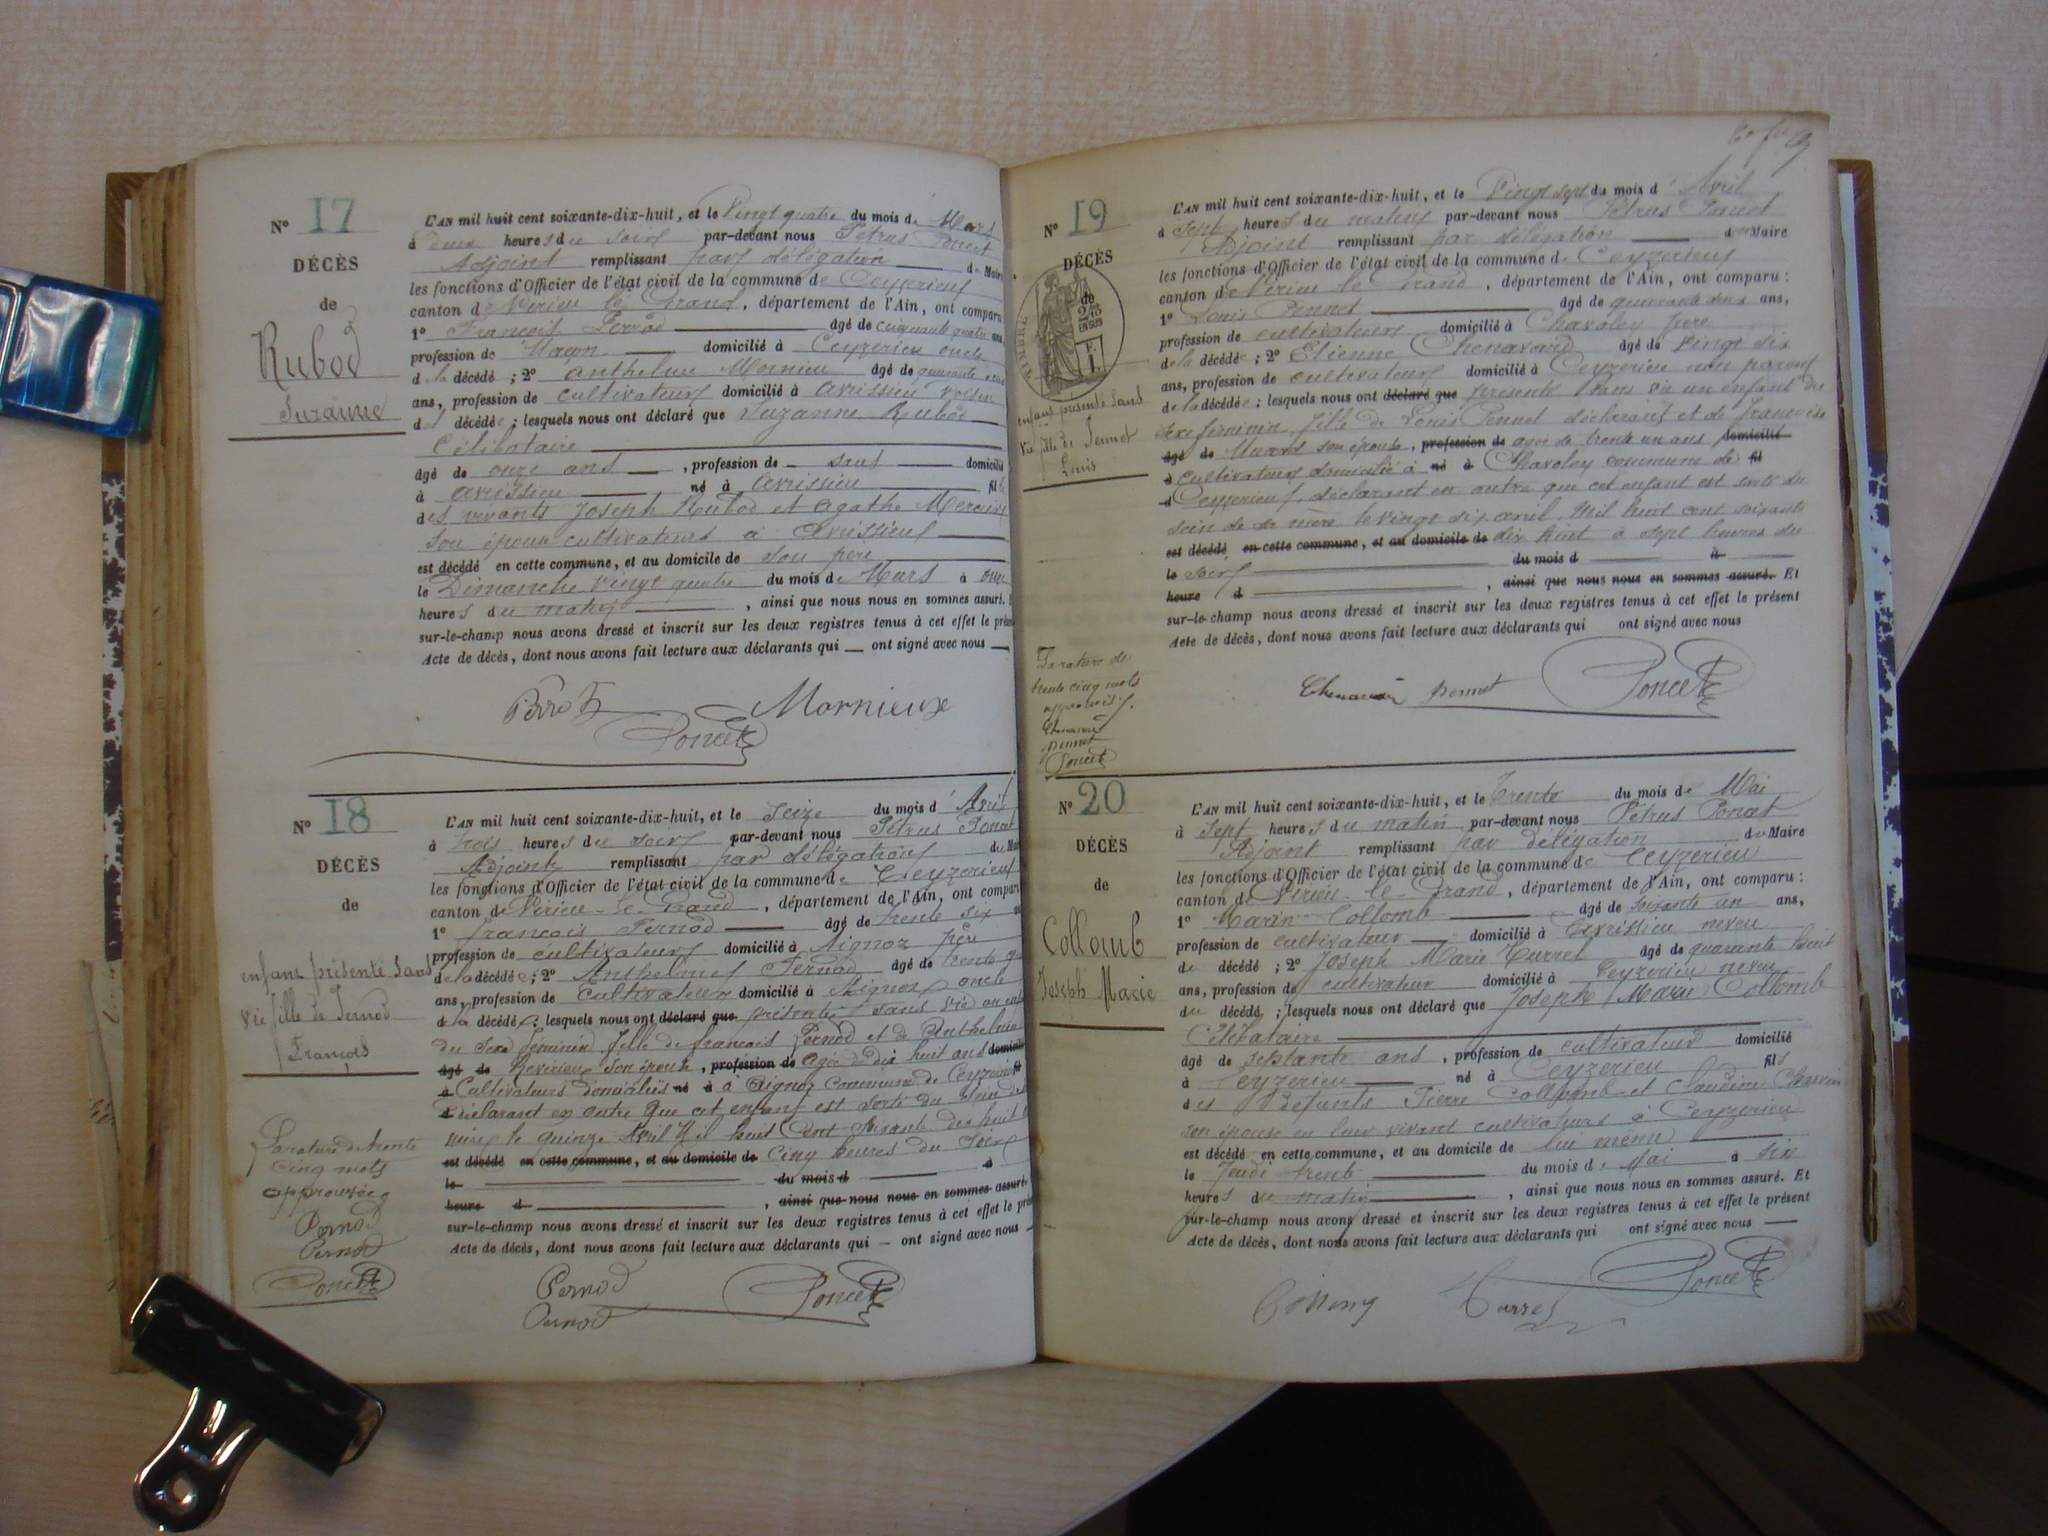 N° 17
DÉCÈS
de
Rubod
Suzanne
L'AN mil huit cent soixante-dix-huit, et le Vingt quatre du mois de Mars
à deux heures du soir par-devant nous Pétrus Poncet
Adjoint remplissant par délégation du Maire
les fonctions d'Officier de l'état civil de la commune de Ceyzerieu
canton de Virieu le Grand, département de l'Ain, ont comparu
1° François Perrod âgé de cinquante quatre ans,
profession de Maçon domicilié à Ceyzerieu oncle
de la décédé ; 2° Anthelme Mornieu âgé de quarante
ans, profession de cultivateur domicilié à Avrissieu voisin
d décédée ; lesquels nous ont déclaré que Suzanne Rubod
Célibataire
âgé de onze ans, profession de sans domicilié
à Avrissieu né à Avrissieu fille
des vivants Joseph Rubod et Agathe
son épouse cultivateurs à Avrissieu
est décédé en cette commune, et au domicile de son père
le Dimanche vingt quatre du mois de Mars à onze
heures du matin, ainsi que nous nous en sommes assuré.
sur-le-champ nous avons dressé et inscrit sur les deux registres tenus à cet effet le présent
Acte de décès, dont nous avons fait lecture aux déclarants qui ont signé avec nous
Mornieux
Poncet
N° 18
DÉCÈS
de
enfant présenté sans
vie fille de Pernod
François
La rature de trente
cinq mots
approuvée
Pernod
Pernod
Poncet
L'AN mil huit cent soixante-dix-huit, et le Seize du mois d'Avril
à trois heures du soir par-devant nous Pétrus Poncet
Adjoint remplissant par délégation du Maire
les fonctions d'Officier de l'état civil de la commune de Ceyzerieu
canton de Virieu-le-Grand, département de l'Ain, ont comparu
1° François Pernod âgé de trente six
profession de cultivateur domicilié à Aignoz père
de la décédée ; 2° Anthelme Pernod âgé de trente
ans, profession de cultivateur domicilié à Aignoz oncle
de la décédé ; lesquels nous ont déclaré que présenté sans vie un enfant
du sexe féminin fille de François Pernod et de Anthelme
âgé de son épouse, profession de agée de dix huit ans domicilié
à Cultivateurs domiciliés né à à Aignoz Commune de Ceyzerieu
d déclarant en outre que cet enfant est sorti du sein de sa
mère le quinze Avril Mil huit Cent soixante dix huit
est décédé en cette commune, et au domicile de Cinq heures du Soir
le du mois d à
heure d, ainsi que nous nous en sommes assuré.
sur-le-champ nous avons dressé et inscrit sur les deux registres tenus à cet effet le présent
Acte de décès, dont nous avons fait lecture aux déclarants qui ont signé avec nous
Pernod
Pernod
Poncet
N° 19
DÉCÈS
de
enfant présenté sans
vie fille de Pennet
Louis
La rature de
trente cinq mots
approuvée
Chenavard
Pennet
Poncet
L'AN mil huit cent soixante-dix-huit, et le Vingt sept du mois d'Avril
à Sept heures du matin par-devant nous Pétrus Poncet
Adjoint remplissant par délégation du Maire
les fonctions d'Officier de l'état civil de la commune de Ceyzerieu
canton de Virieu le Grand, département de l'Ain, ont comparu :
1° Louis Pennet âgé de quarante deux ans,
profession de cultivateur domicilié à Chavoley père
de la décédée ; 2° Etienne Chenavard âgé de vingt six
ans, profession de cultivateur domicilié à Ceyzerieu non parent
de la décédée ; lesquels nous ont déclaré que présenté sans vie un enfant du
sexe féminin, fille de Louis Pennet déclarant et de Françoise
âgé de son épouse, profession de agée de trente un ans domicilié
à cultivateurs domicilié à né à Chavoley commune de fil
d Ceyzerieu, déclarant en outre que cet enfant est sorti du
sein de sa mère le vingt six avril Mil huit cent soixante
est décédé en cette commune, et au domicile de dix huit à sept heures du
le soir du mois d à
heure d, ainsi que nous nous en sommes assuré. Et
sur-le-champ nous avons dressé et inscrit sur les deux registres tenus à cet effet le présent
Acte de décès, dont nous avons fait lecture aux déclarants qui ont signé avec nous
Chenavard Pennet Poncet
N° 20
DÉCÈS
de
Collomb
Joseph Marie
L'AN mil huit cent soixante-dix-huit, et le Trente du mois de Mai
à sept heures du matin par-devant nous Pétrus Poncet
Adjoint remplissant par délégation du Maire
les fonctions d'Officier de l'état civil de la commune de Ceyzerieu
canton de Virieu-le-Grand, département de l'Ain, ont comparu :
1° Marin Collomb âgé de soixante un ans,
profession de cultivateur domicilié à Avrissieu neveu
du décédé ; 2° Joseph Marie Curret âgé de quarante huit
ans, profession de cultivateur domicilié à Ceyzerieu neveu
du décédé ; lesquels nous ont déclaré que Joseph Marie Collomb
Célibataire
âgé de septante ans, profession de cultivateur domicilié
à Ceyzerieu né à Ceyzerieu fils
des défunts Pierre Collomb et Claudine
son épouse en leur vivant cultivateurs à Ceyzerieu
est décédé en cette commune, et au domicile de lui même
le Jeudi trente du mois de Mai à six
heures du matin, ainsi que nous nous en sommes assuré. Et
sur-le-champ nous avons dressé et inscrit sur les deux registres tenus à cet effet le présent
Acte de décès, dont nous avons fait lecture aux déclarants qui ont signé avec nous
Curret Poncet